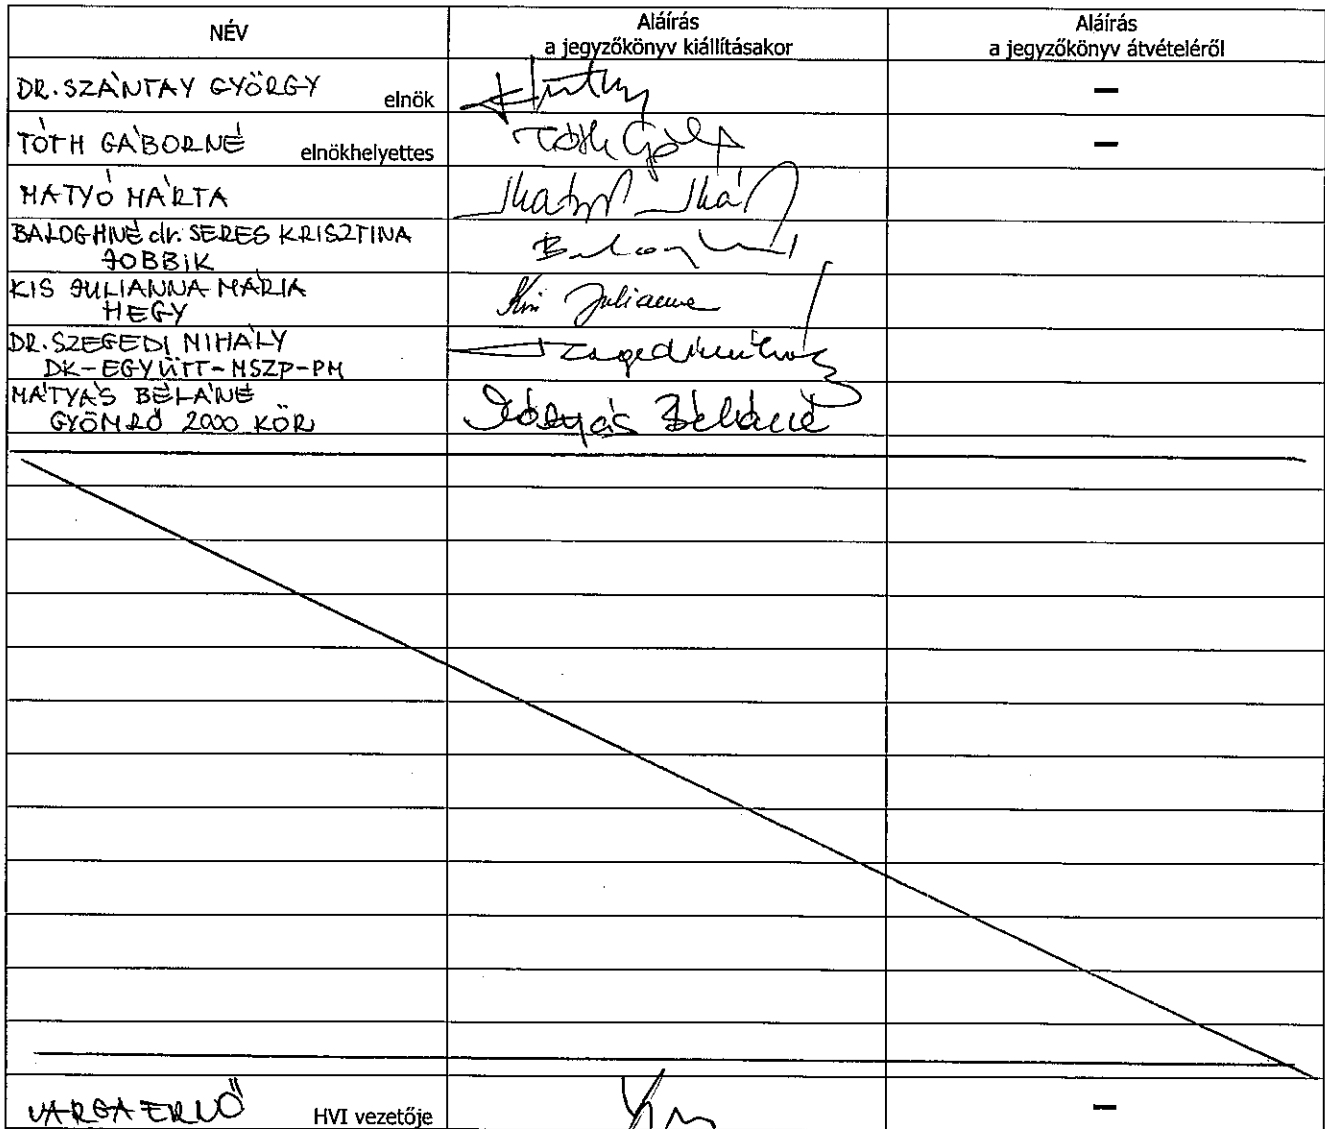 NÉV
Aláírás
a jegyzőkönyv kiállításakor
Aláírás
a jegyzőkönyv átvételéről
DR. SZÁNTAY GYÖRGY elnök
—
TÓTH GÁBORNÉ elnökhelyettes
—
MATYÓ MÁRTA
BALOGHNÉ dr. SERES KRISZTINA
JOBBIK
KIS JULIANNA MÁRIA
HEGY
Kis Julianna
DR. SZEGEDI MIHÁLY
DK-EGYÜTT-MSZP-PM
MÁTYÁS BÉLÁNÉ
GYÖMRŐ 2000 KÖR
Mátyás Béláné
VARGA ERNŐ HVI vezetője
—